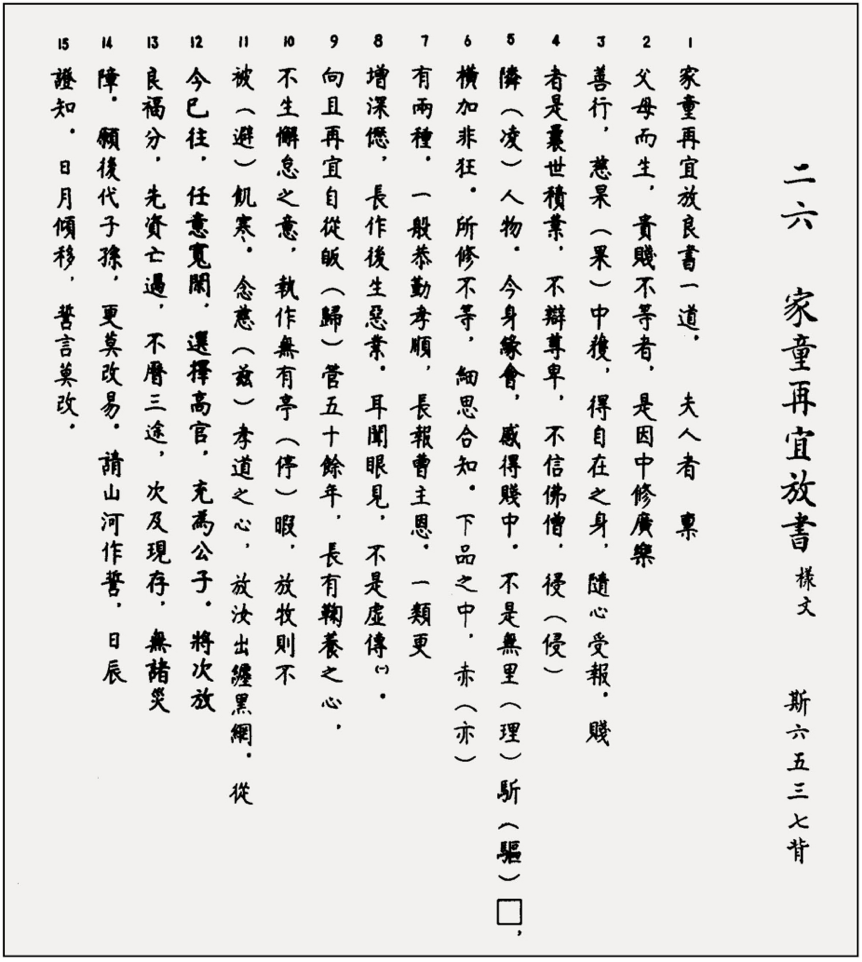 二六 家童再宜放書 樣文 斯六五三七背
1 家童再宜放良書一道。 夫人者 禀
2 父母而生，貴賤不等者，是因中修廣樂
3 善行，慈杲（果）中獲，得自在之身，隨心受報。賤
4 者是曩世積業，不辯尊卑，不信佛僧，㑴（侵）
5 隣（凌）人物。今身緣會，感得賤中。不是無里（理）馸（驅）□，
6 橫加非狂。所修不等，細思合知。下品之中，赤（亦）
7 有兩種。一般恭勤孝順，長報曹主恩。一類更
8 增深僁，長作後生惡業。耳聞眼見，不是虛傳㈠。
9 向且再宜自從皈（歸）管五十餘年，長有鞠養之心，
10 不生懈怠之意，執作無有亭（停）暇，放牧則不
11 被（避）飢寒。念慈（玆）孝道之心，放汝出纏黑網。從
12 今已往，任意寬閑，選擇高官，充爲公子。將次放
13 良福分，先資亡過，不曆三途，次及現存，無諸災
14 障。願後代子孫，更莫改易。請山河作誓，日辰
15 證知。日月傾移，誓言莫改。